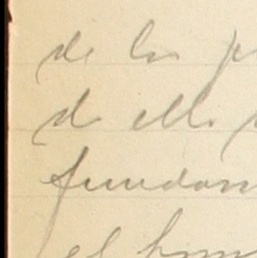 de los p
de ella
fundam
el hom